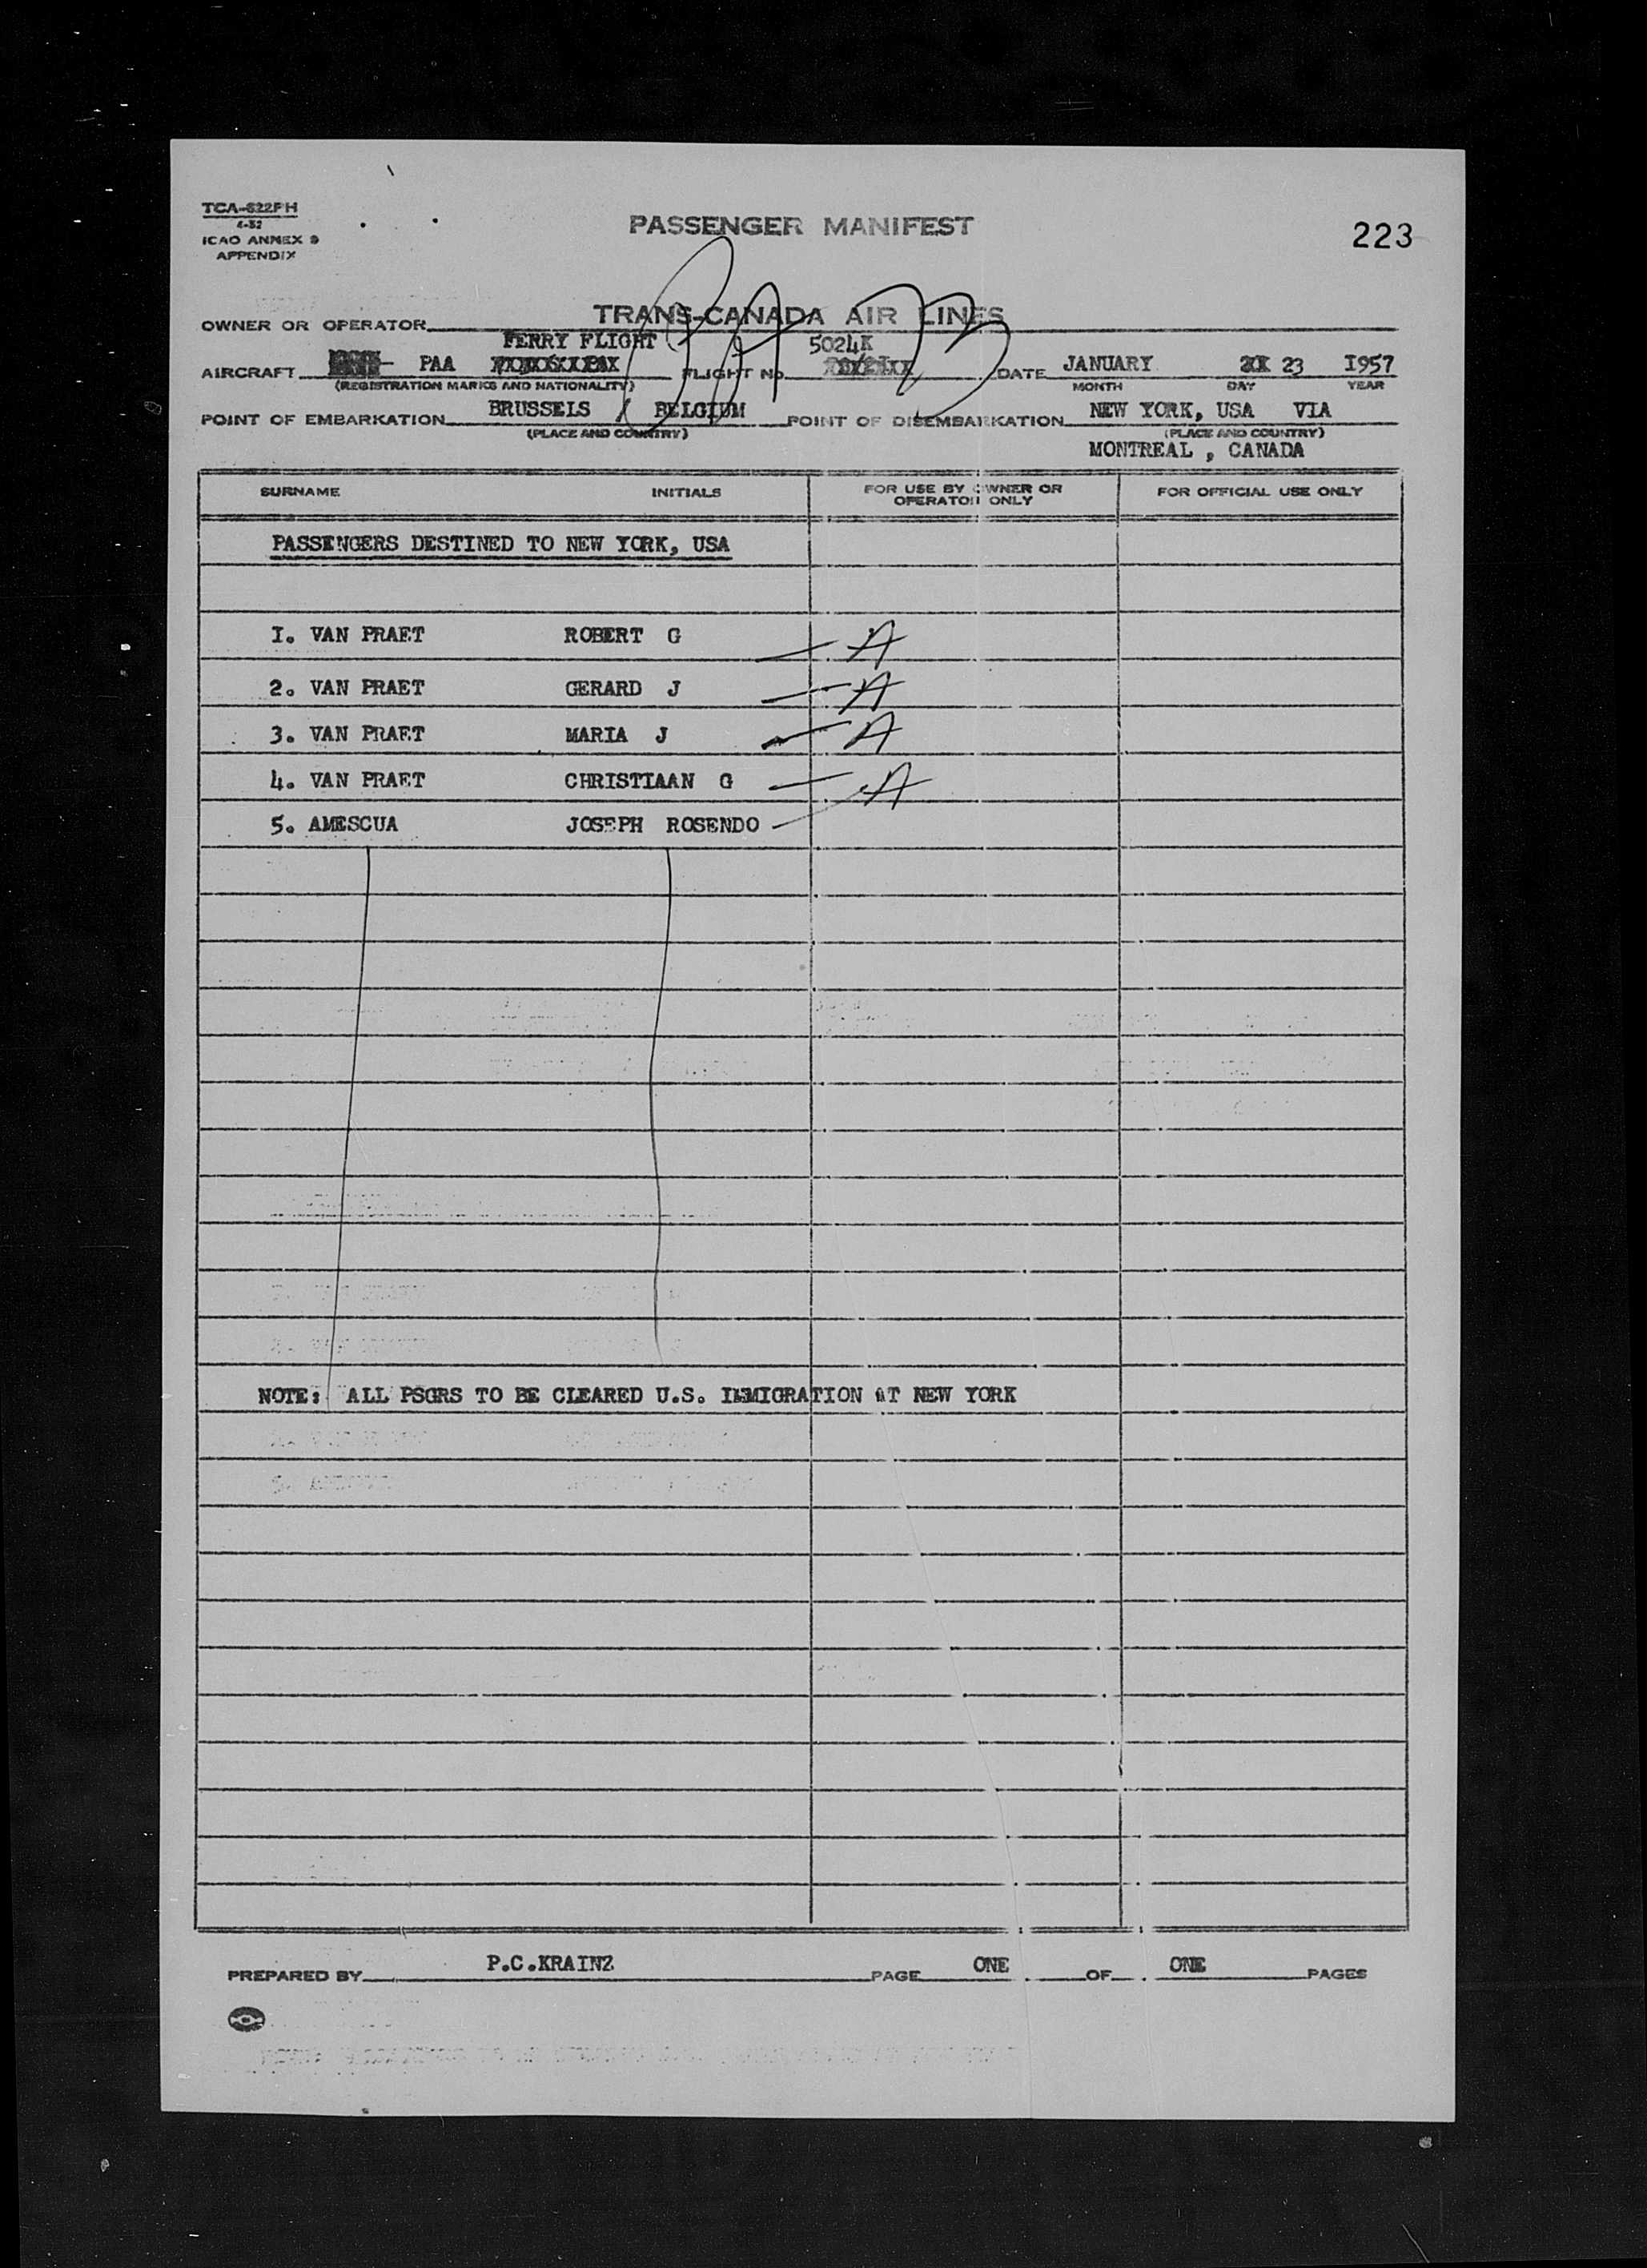 TCA-622PH
4-52
ICAO ANNEX 9
APPENDIX
PASSENGER MANIFEST
223
TRANS-CANADA AIR LINES
OWNER OR OPERATOR
FERRY FLIGHT 5024K
AIRCRAFT PAA FLIGHT No. DATE JANUARY 23 1957
(REGISTRATION MARKS AND NATIONALITY) MONTH DAY YEAR
POINT OF EMBARKATION BRUSSELS / BELGIUM POINT OF DISEMBARKATION NEW YORK, USA VIA
(PLACE AND COUNTRY) (PLACE AND COUNTRY)
MONTREAL , CANADA
SURNAME INITIALS FOR USE BY OWNER OR OPERATOR ONLY FOR OFFICIAL USE ONLY
PASSENGERS DESTINED TO NEW YORK, USA
1. VAN PRAET ROBERT G — A
2. VAN PRAET GERARD J — A
3. VAN PRAET MARIA J — A
4. VAN PRAET CHRISTIAAN G — A
5. AMESCUA JOSEPH ROSENDO
NOTE: ALL PSGRS TO BE CLEARED U.S. IMMIGRATION AT NEW YORK
PREPARED BY P.C.KRAINZ PAGE ONE OF ONE PAGES